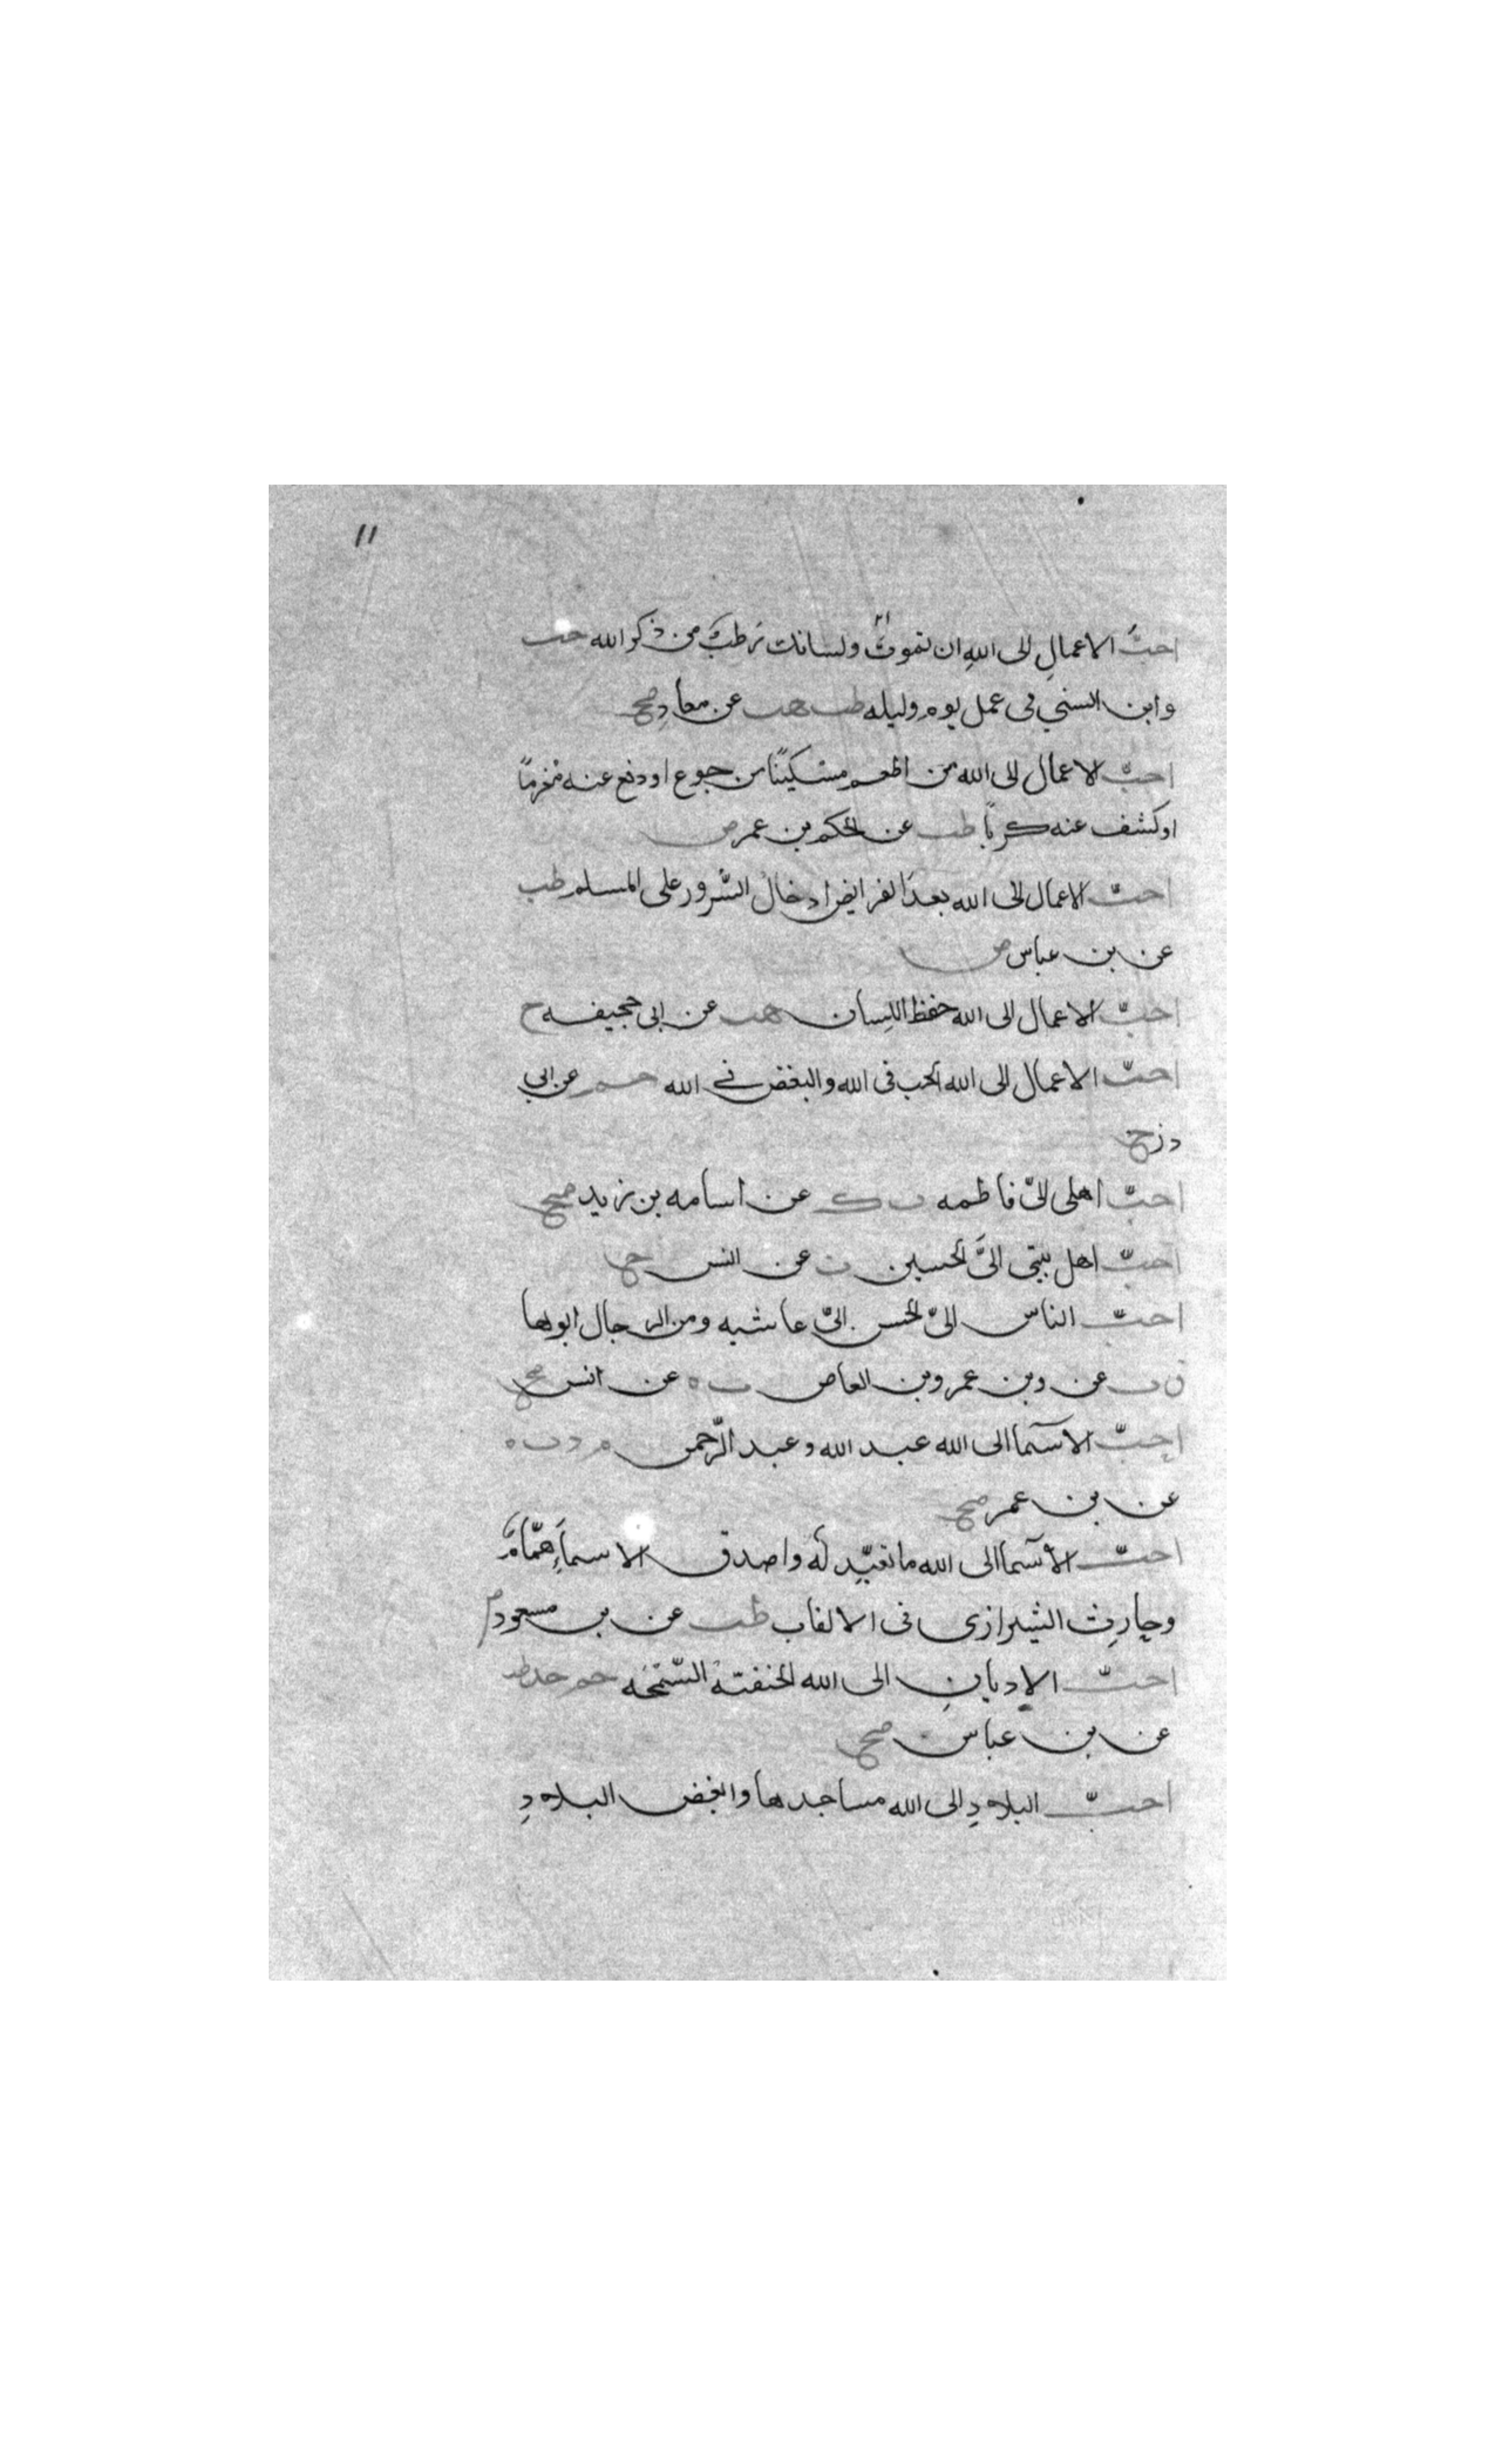 ١١
احبَّ الاعمالِ الى اللهِ ان تموتَ ولسانك رَطبٌ من ذكر الله حب
وابن السني فى عمل يوم وليله طب هب عن معاذ صح
احبّ الاعمال الى الله من اطعم مسكينًا من جوع او دفع عنه مغرمًا
او كشف عنه كربًا طب عن الحكم بن عمر ض
احبّ الاعمال الى الله بعدَ الفرايض ادخالُ السُّرور على المسلم طب
عن بن عباس ض
احبّ الاعمال الى الله حفظ اللسان هب عن ابى جحيفه ح
احبّ الاعمال الى الله الحب فى الله والبغض في الله حم عن ابي
ذر ح
احبّ اهلى الىّ فاطمه ت ك عن اسامه بن زيد صح
احبّ اهل بيتى الىَّ الحسين ت عن انس ح
احبّ الناس الىّ عاشيه ومن الرجال ابوها
ق ت عن عمرو بن العاص ت ه عن انس صح
احبّ الاسما الى الله عبد الله وعبد الرّحمن م د ت ه
عن بن عمر صح
احبّ الاسما الى الله ما تعبّد له واصدق الاسماءِ همّامٌ
وحارث الشيرازى فى الالقاب طب عن بن مسعود
احبّ الاديانِ الى الله الحنفيّة السّمحَه حم خد طب
عن بن عباس صح
احبّ البلادِ الى الله مساجدها وابغض البلادِ